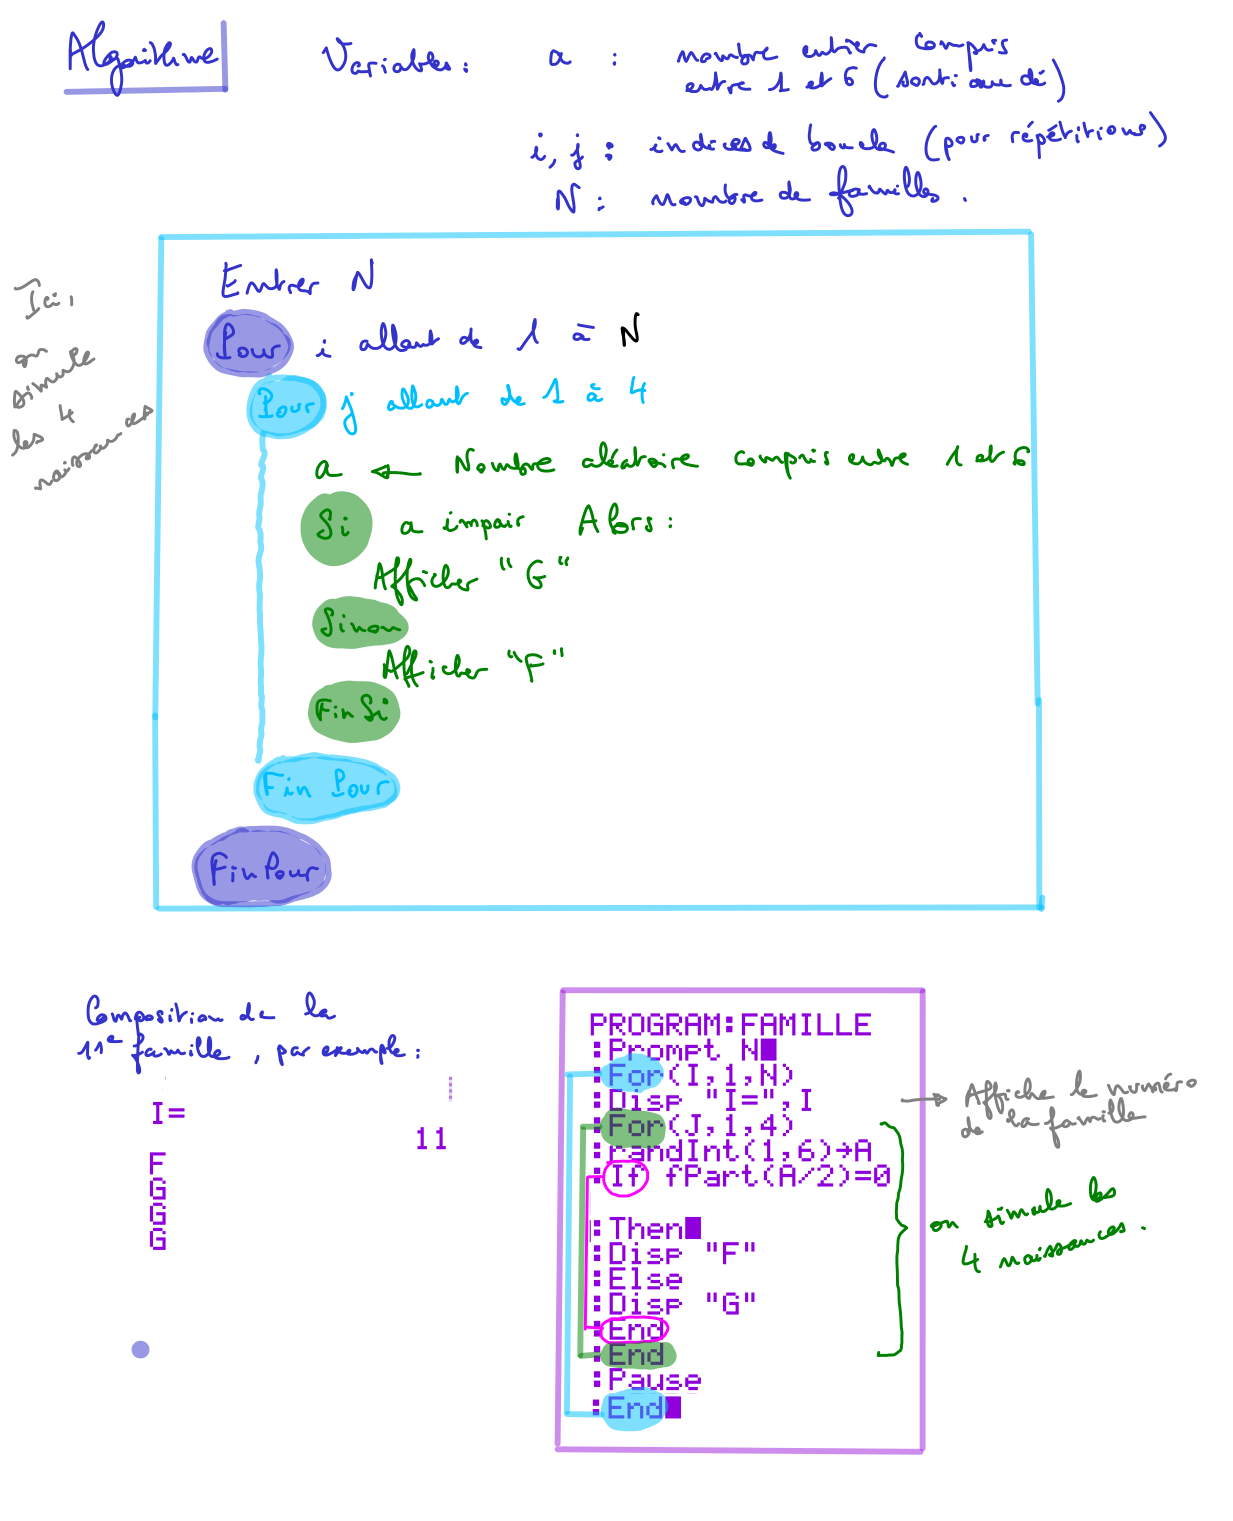 Algorithme
Variables : a : nombre entier compris
entre 1 et 6 (sorti au dé)
i, j : indices de boucle (pour répétitions)
N : nombre de familles.
Ici,
on
simule
les 4
naissances
Entrer N
Pour i allant de 1 à N
Pour j allant de 1 à 4
a ← Nombre aléatoire compris entre 1 et 6
Si a impair Alors :
Afficher "G"
Sinon
Afficher "F"
FinSi
Fin Pour
FinPour
Composition de la
11e famille, par exemple :
I=
11
F
G
G
G
PROGRAM:FAMILLE
:Prompt N
:For(I,1,N)
:Disp "I=",I
:For(J,1,4)
:randInt(1,6)→A
:If fPart(A/2)=0
:Then
:Disp "F"
:Else
:Disp "G"
:End
:End
:Pause
:End
→ Affiche le numéro
de la famille
on simule les
4 naissances.